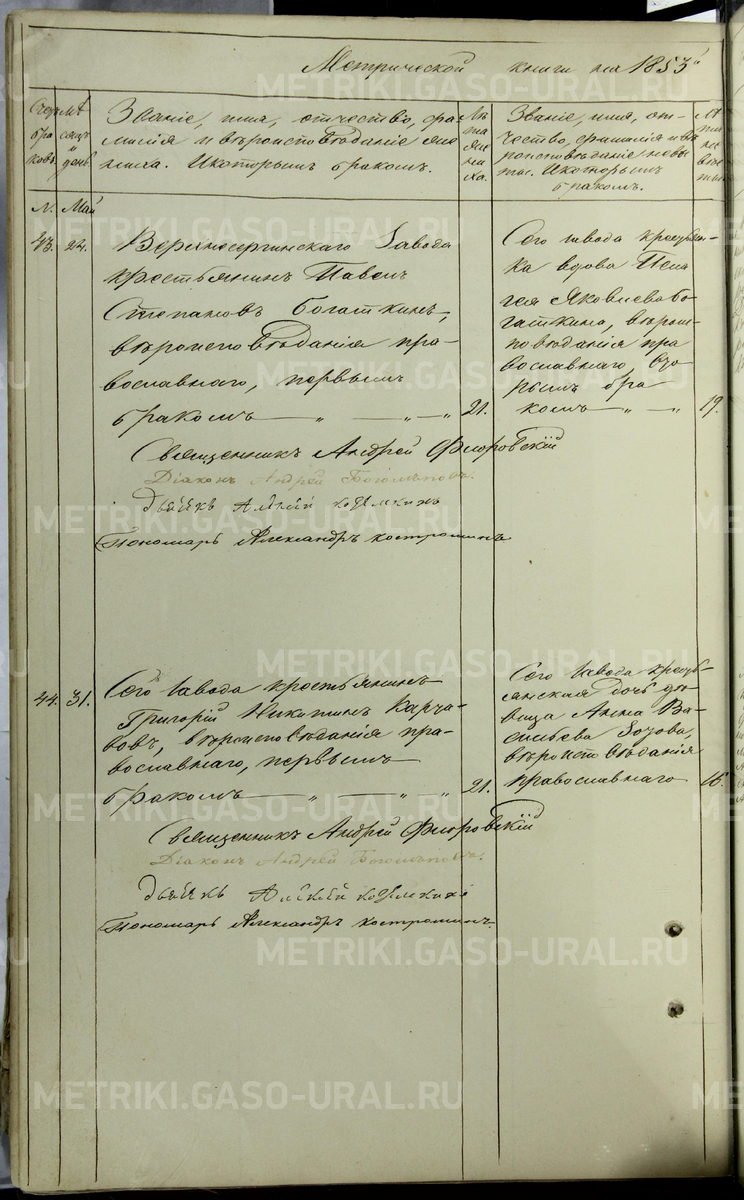 Метрической книги на 1853й
Счетъ бра ковъ.
Мѣ сяцъ и день
Званіе, имя, отчество, фа-
милія и вѣроисповѣданіе же-
ниха. И которымъ бракомъ.
Лѣ та же ни ха.
Званіе, имя, от-
чество, фамилія и вѣ
роисповѣданіе невѣс
ты. И которымъ
бракомъ.
Лѣ та не вѣс ты
N. Май
43. 22.
Верхнесергинскаго Завода
крестьянинъ Павелъ
Степановъ Богаткинъ,
вѣроисповѣданія пра-
вославнаго, первымъ
бракомъ — „ — „ — „ 21.
Сего завода крестьян-
ка вдова Пела
гея Яковлева Бо-
гаткина, вѣроис-
повѣданія пра
вославнаго, вто-
рымъ бра
комъ — „ — „ 19.
Священникъ Андрей Флоровскій
Діаконъ Андрей Богомъловъ.
Дьячекъ Алексѣй
Пономарь Александръ Костроминъ
44. 31.
Сего Завода крестьянинъ
Григорій Никитинъ Карча-
вовъ, вѣроисповѣданія пра-
вославнаго, первымъ
бракомъ „ — „ — „ 21.
Сего Завода кресть-
янская дочь дѣ-
вица Анна Ва-
сильева Зотова,
вѣроисповѣданія
православнаго 16.
Священникъ Андрей Флоровскій
Діаконъ Андрей Богомъловъ.
Дьячекъ Алексѣй
Пономарь Александръ Костроминъ.
METRIKI.GASO-URAL.RU